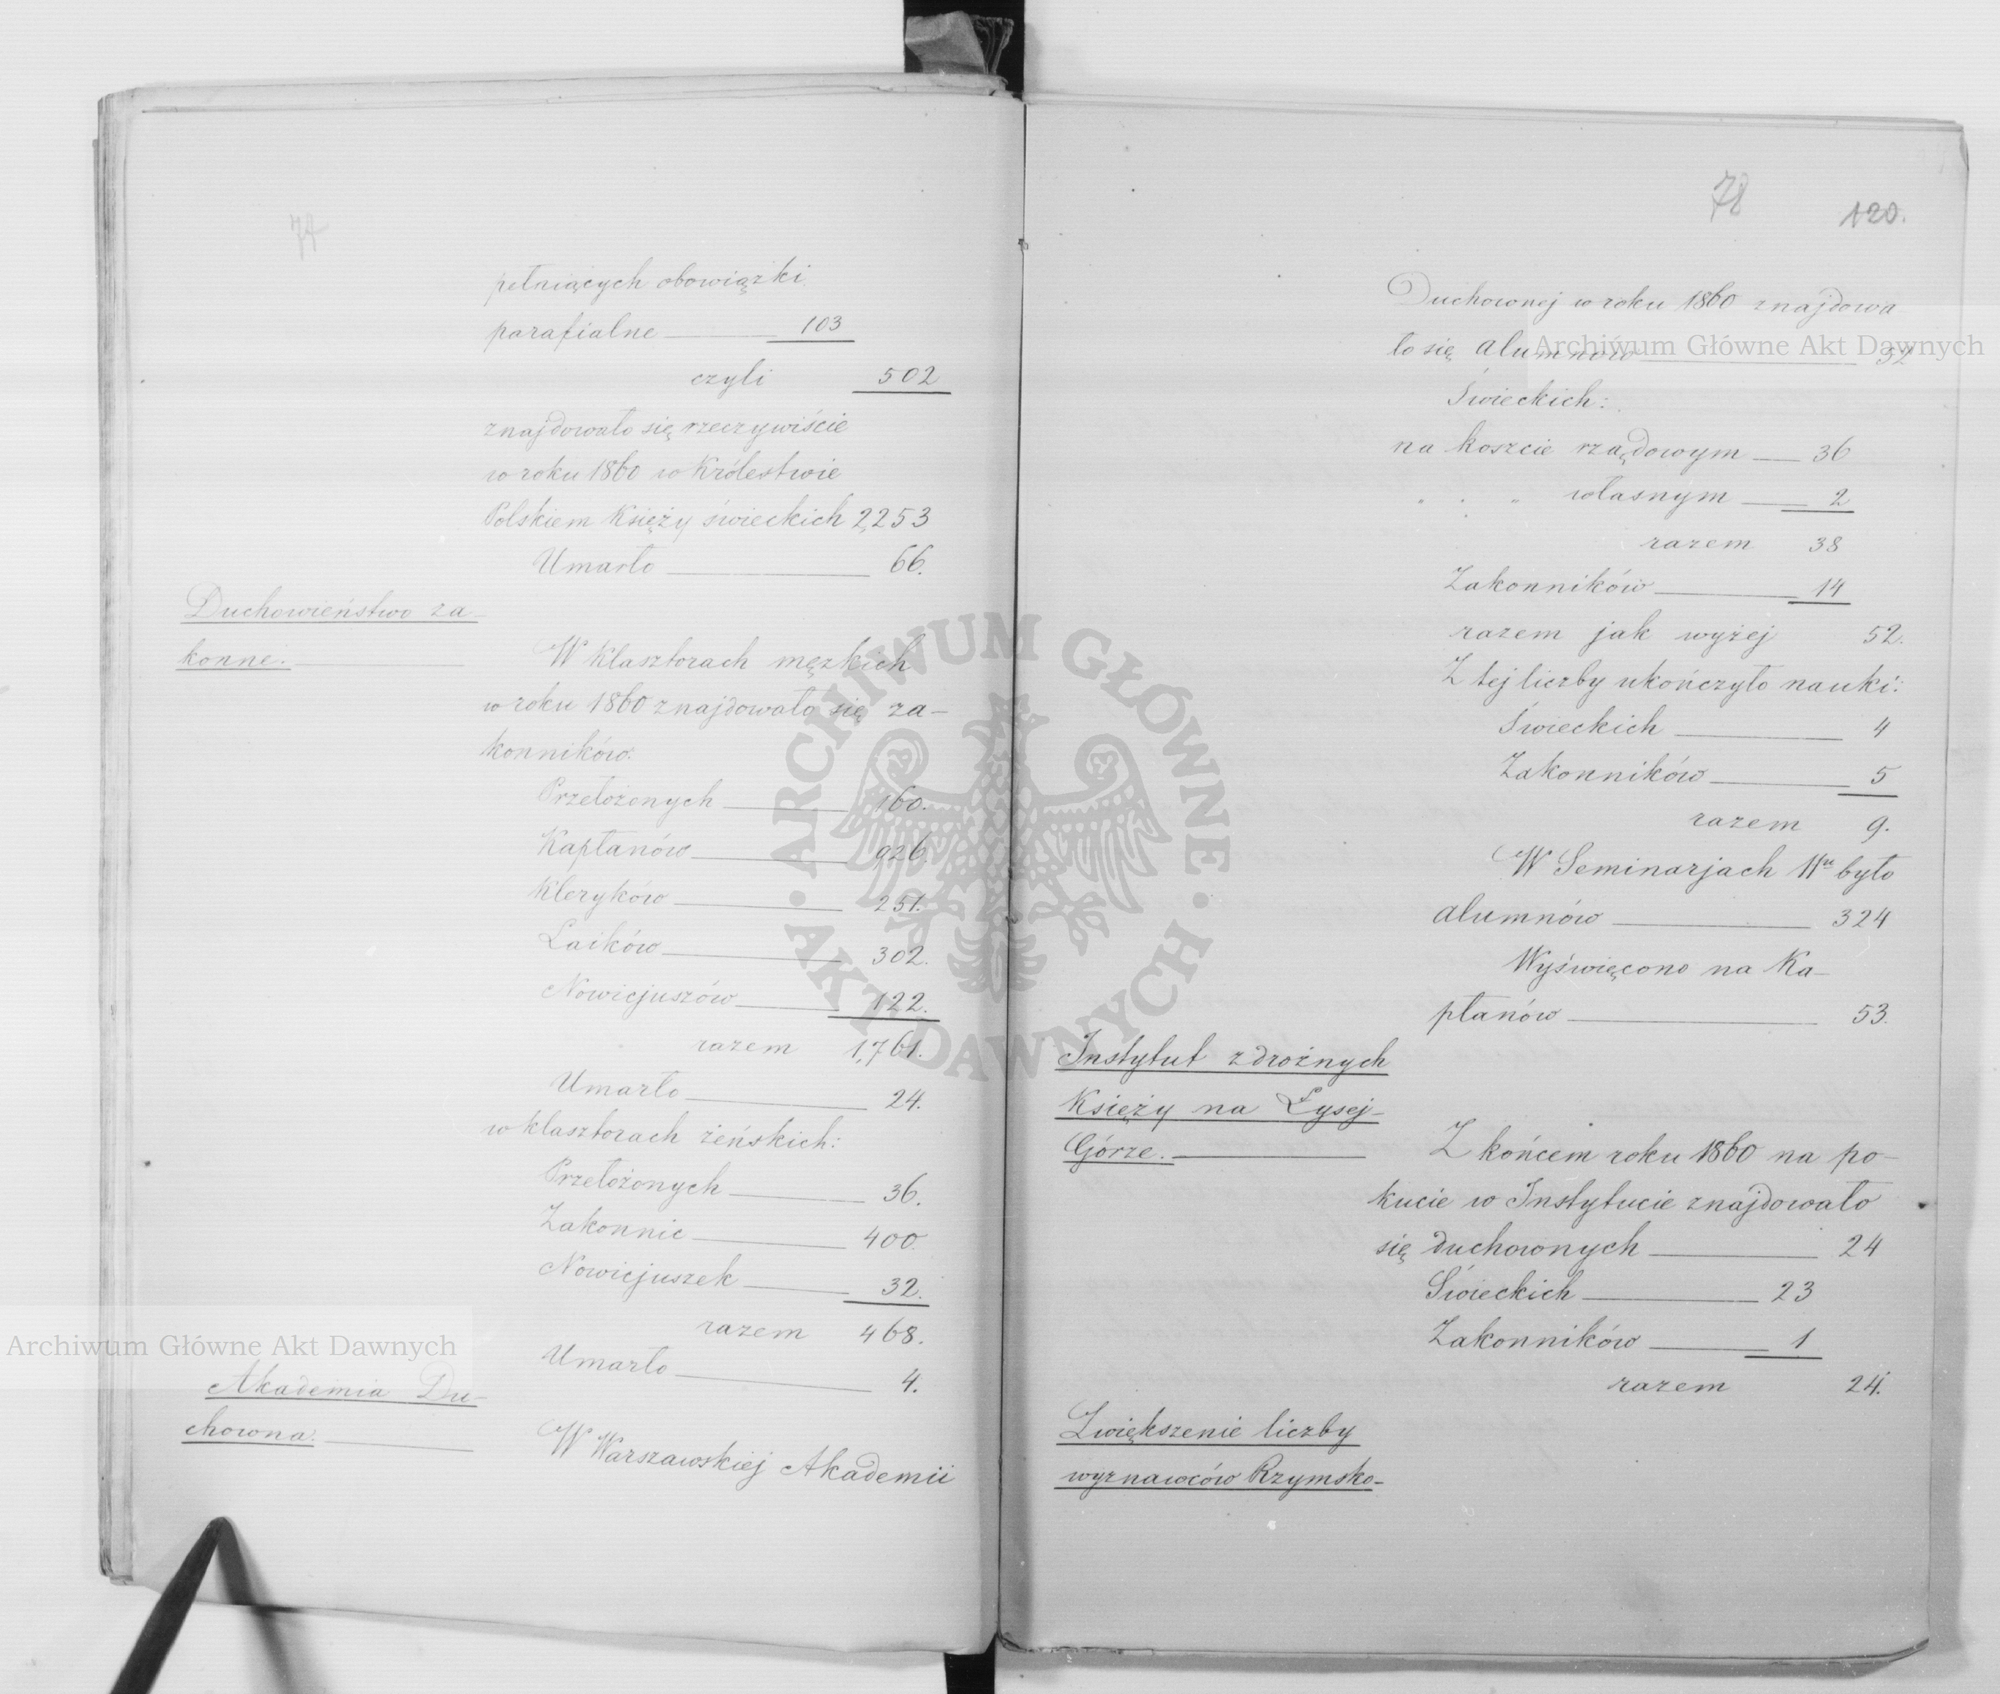 77
pełniących obowiązki
parafialne 103
czyli 502
znajdowało się rzeczywiście
w roku 1860 w Królestwie
Polskiem Księży świeckich 2,253
Umarło 66.
Duchowieństwo za-
konne.
W klasztorach męzkich
w roku 1860 znajdowało się za-
konników:
Przełożonych 160.
Kapłanów 926.
Kleryków 251.
Laików 302.
Nowicjuszów 122.
razem 1,761.
Umarło 24.
w klasztorach żeńskich:
Przełożonych 36.
Zakonnic 400.
Nowicjuszek 32.
razem 468.
Umarło 4.
Akademia Du-
chowna.
W Warszawskiej Akademii
78
120.
Duchownej w roku 1860 znajdowa
ło się alumnów 52
Świeckich:
na koszcie rządowym 36
" " " własnym 2
razem 38
Zakonników 14
razem jak wyżej 52.
Z tej liczby ukończyło nauki:
Świeckich 4
Zakonników 5
razem 9.
W Seminarjach 11tu było
alumnów 324
Wyświęcono na Ka-
płanów 53.
Instytut zdrożnych
Księży na Łysej-
Górze.
Z końcem roku 1860 na po-
kucie w Instytucie znajdowało
się duchownych 24
Świeckich 23
Zakonników 1
razem 24.
Zwiększenie liczby
wyznawców Rzymsko-
Archiwum Główne Akt Dawnych
ARCHIWUM GŁÓWNE
AKT DAWNYCH
Archiwum Główne Akt Dawnych